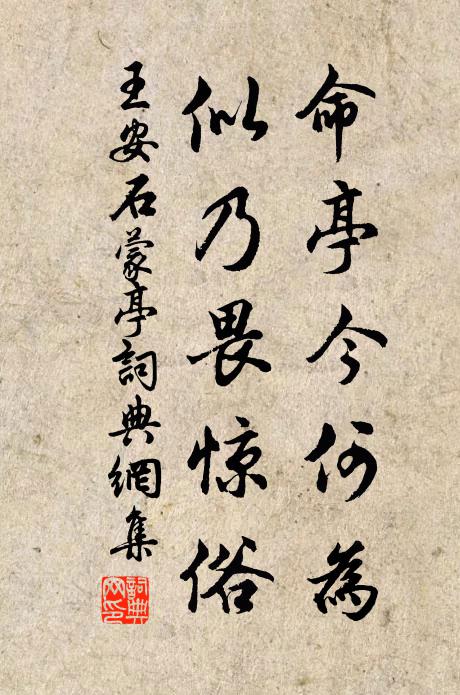 命亭今何為
似乃畏惊俗
王安石蒙亭詞典網集
詞典网印